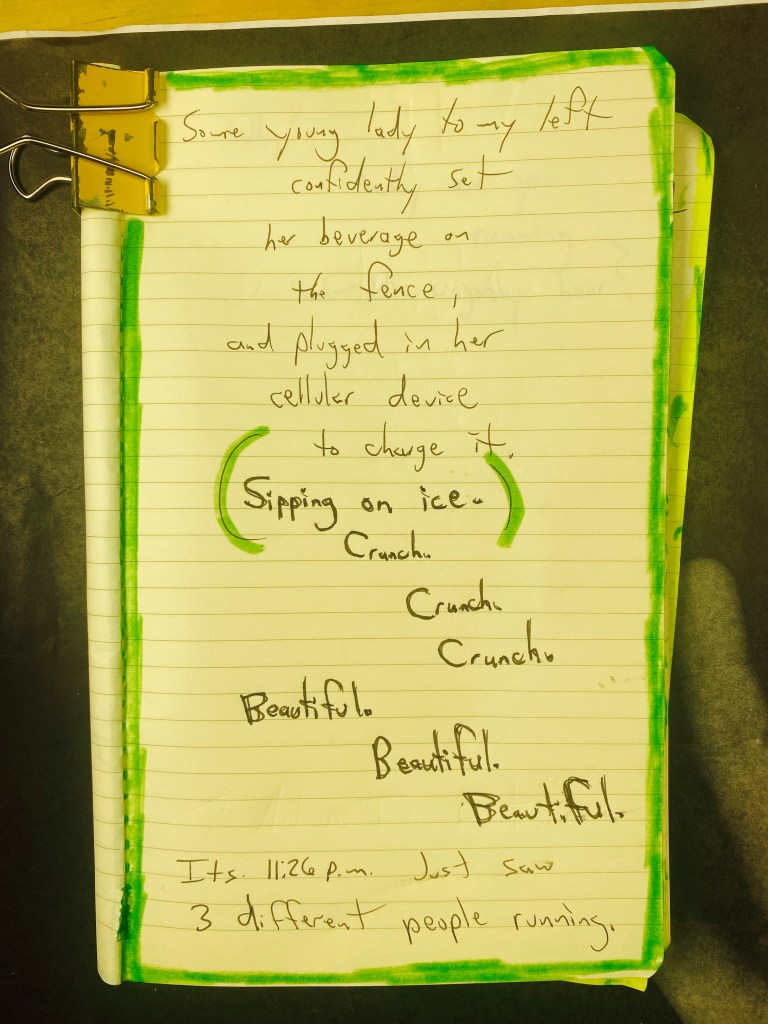 Some young lady to my left
confidently set
her beverage on
the fence,
and plugged in her
cellular device
to charge it.
(Sipping on ice.)
Crunch.
Crunch.
Crunch.
Beautiful.
Beautiful.
Beautiful.
Its. 11:26 p.m. Just saw
3 different people running.